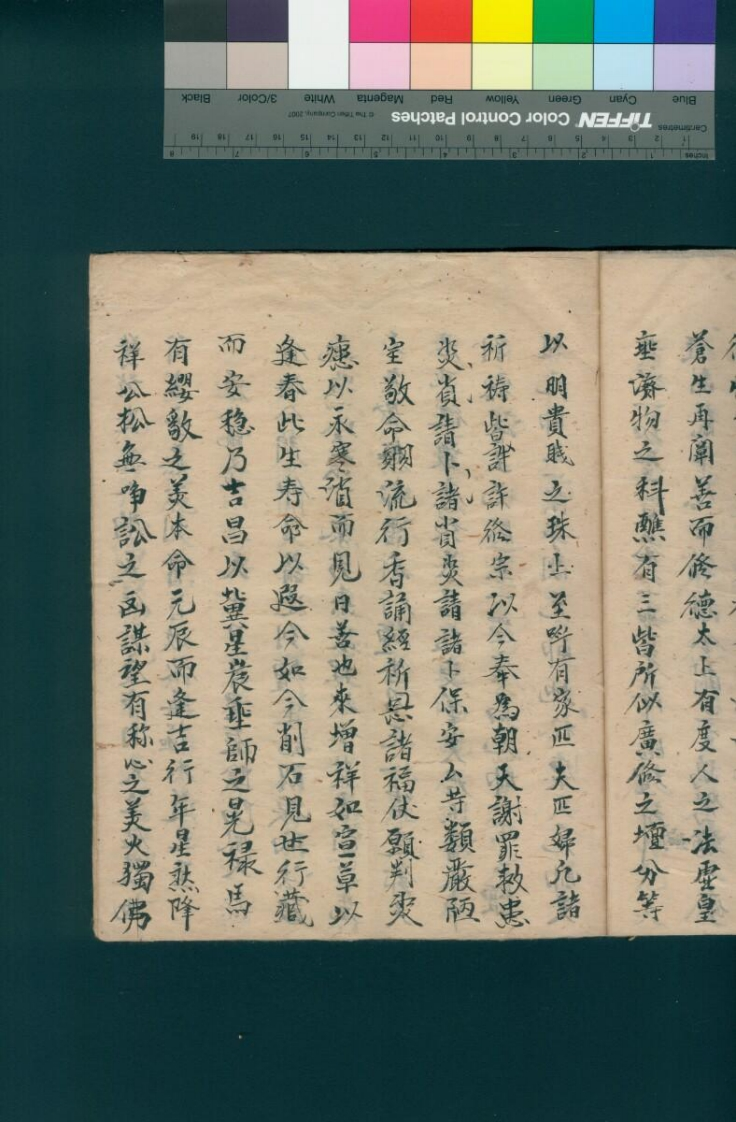 蒼生再闡善而修德太上有度人之法虛皇
垂濟物之科醮有三皆所似廣修之壇分等
以明貴賤之殊上至吁有家匹夫匹婦凡諸
祈禱皆謝許修宗以今奉為朝天謝罪赦患
灾省請卜諸省灾請諸卜保安厶等類嚴陋
室敬命流行香誦經祈恩諸福伏願判灾
以永寒消而見日善也來增祥如宣草以
逢春此生寿命以遐今如今削石見世行藏
而安穩乃吉昌以冀星晨垂師之晃禄馬
有纓敬之美本命元辰而逢吉行年星煞降
祥公松無啼訟之凶謀望有称心之美火獨佛
Blue
Cyan
Green
Yellow
Red
Magenta
White
3/Color
Black
TIFFEN Color Control Patches
© The Tiffen Company, 2007
Centimetres
1 2 3 4 5 6 7 8 9 10 11 12 13 14 15 16 17 18 19
Inches
1 2 3 4 5 6 7 8